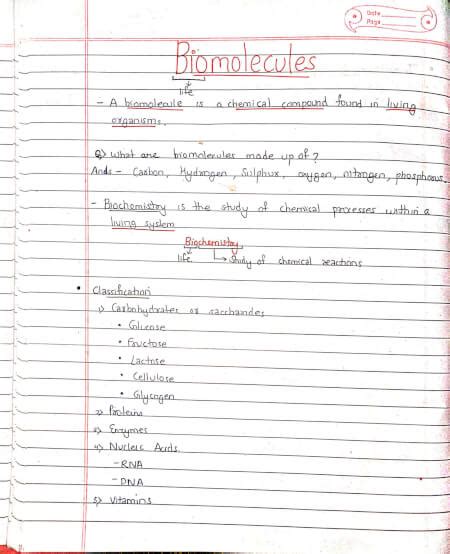 Date
Page
Biomolecules
life
- A biomolecule is a chemical compound found in living
organisms.
Q) What are biomolecules made up of?
Ands - Carbon, Hydrogen, Sulphur, oxygen, nitrogen, phosphorus.
- Biochemistry is the study of chemical processes within a
living system
Biochemistry
life → Study of chemical reactions
• Classification
1) Carbohydrates or saccharides
• Glucose
• Fructose
• Lactose
• Cellulose
• Glycogen
2) Proteins
3) Enzymes
4) Nucleic Acids
- RNA
- DNA
5) Vitamins